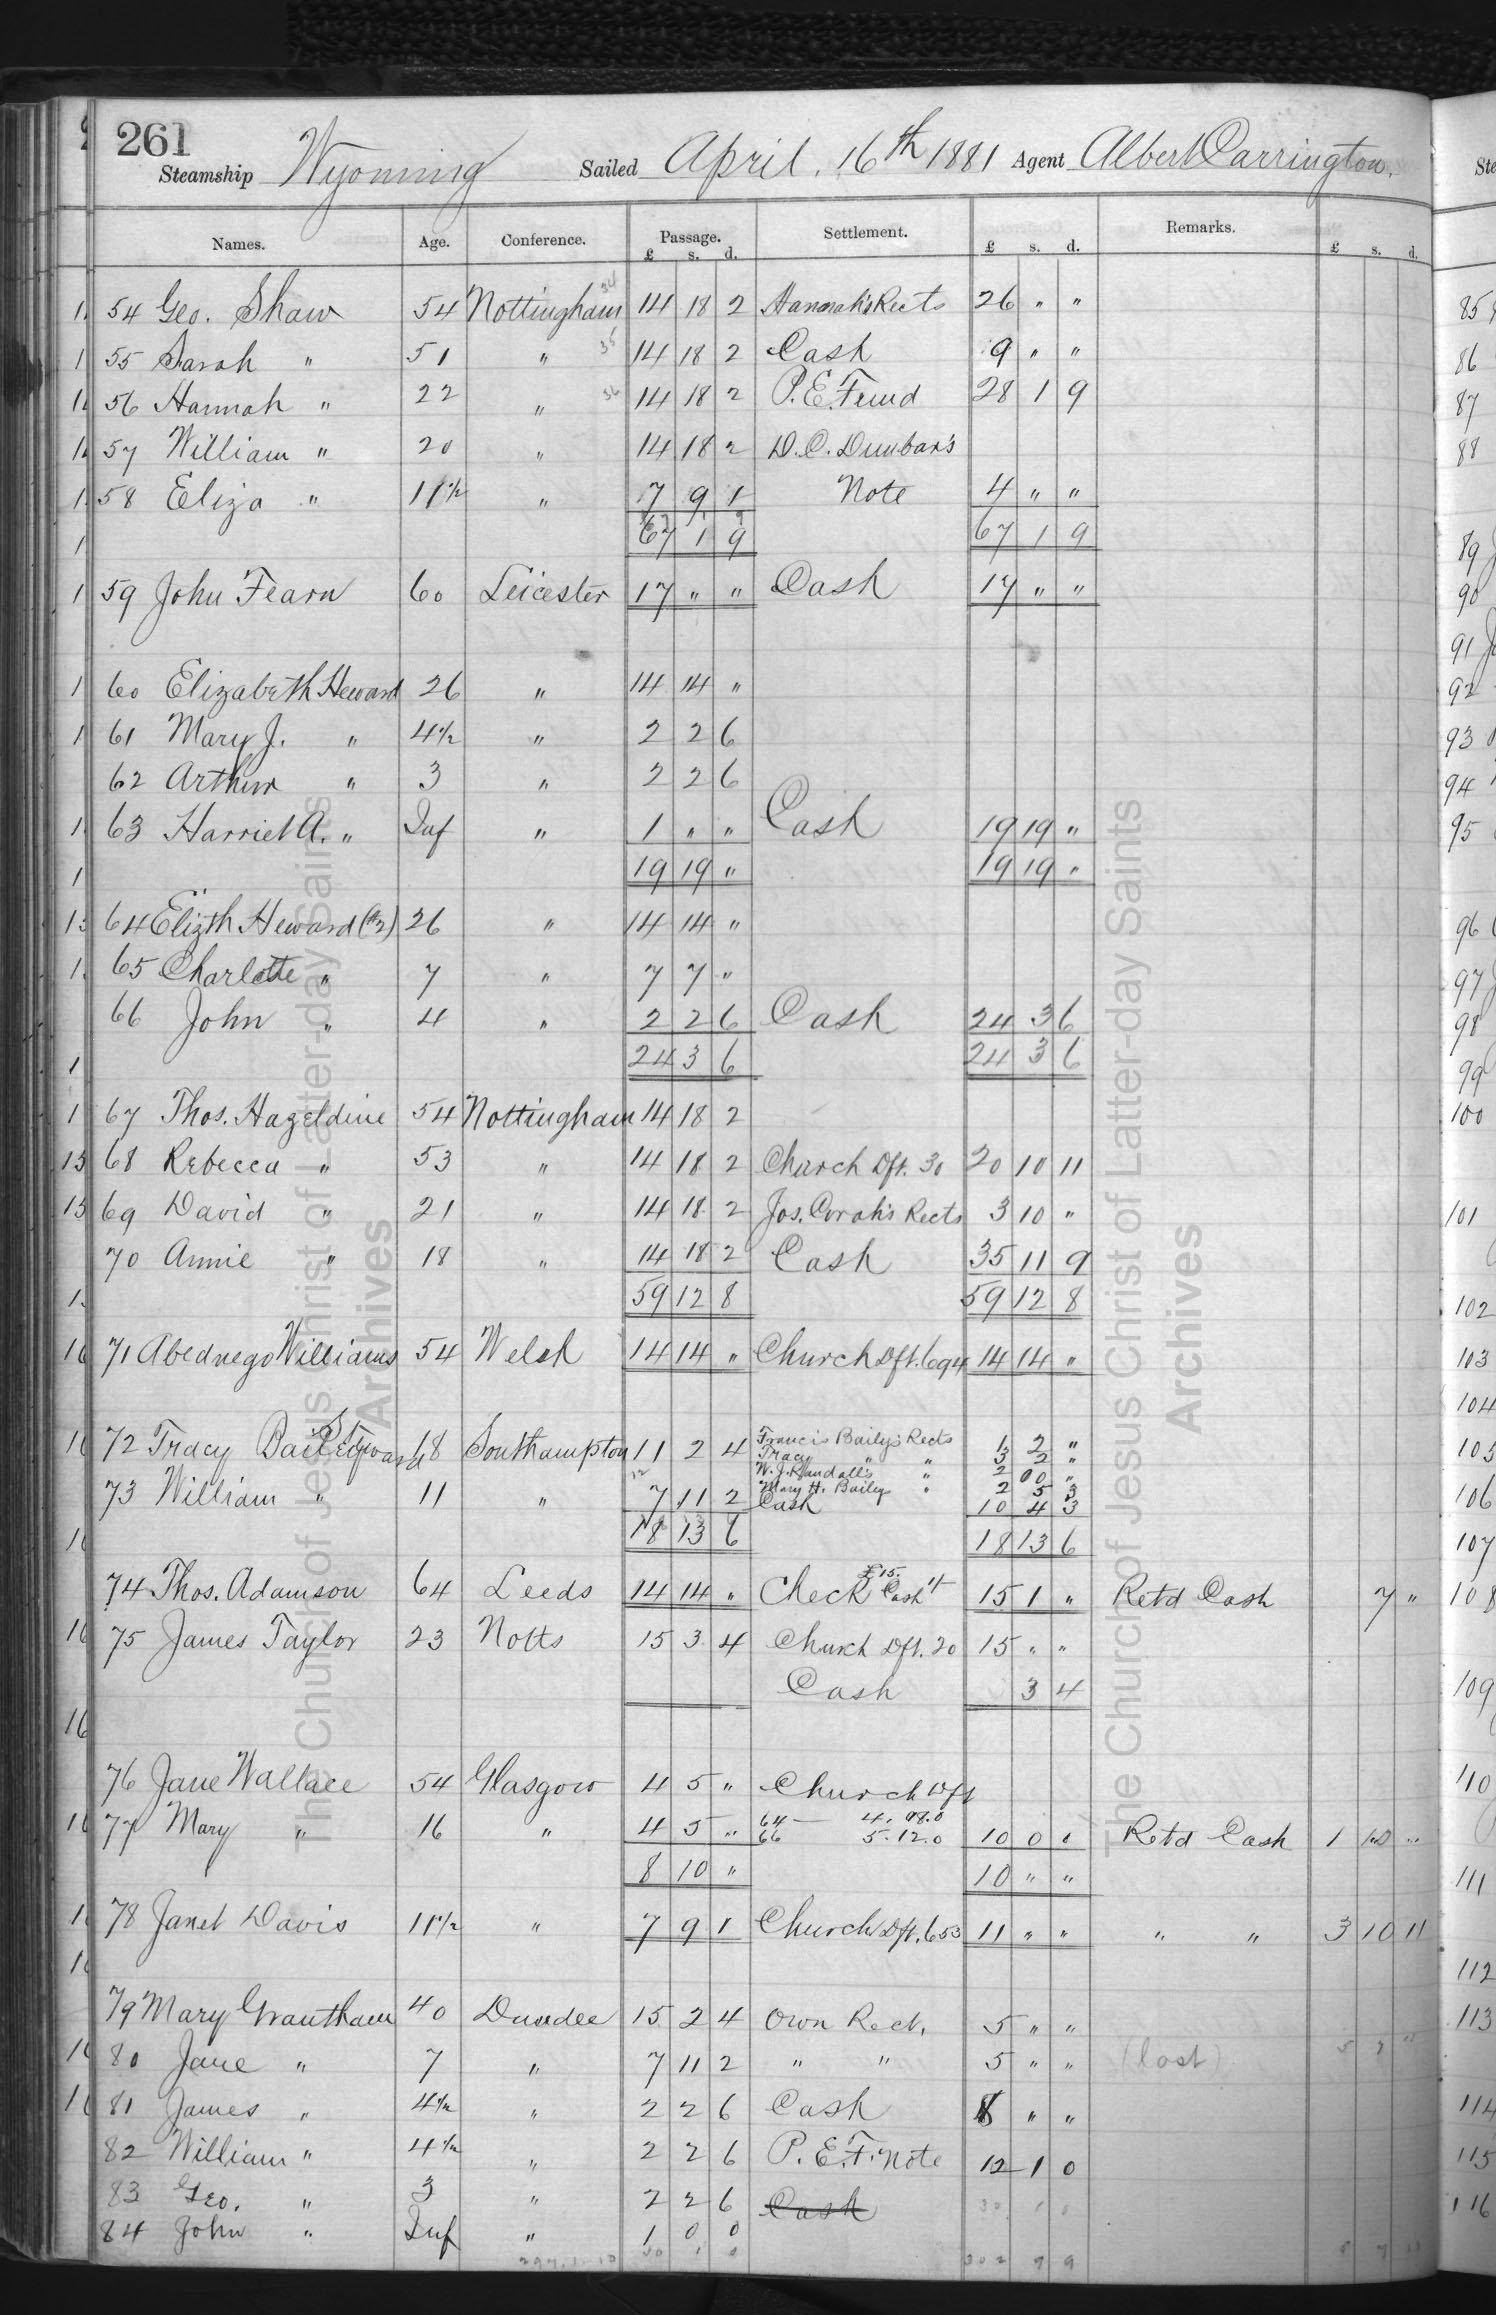 261
Steamship Wyoming Sailed April. 16th 1881 Agent Albert Carrington.
Names. Age. Conference. Passage. £ s. d. Settlement. £ s. d. Remarks. £ s. d.
54 Geo. Shaw 54 Nottingham 14 18 2 Hannah's Rects 26 " "
55 Sarah " 51 " 14 18 2 Cash 9 " "
56 Hannah " 22 " 14 18 2 P.E. Fund 28 1 9
57 William " 20 " 14 18 2 D.C. Dunbar's
58 Eliza " 11½ " 7 9 1 Note 4 " "
67 1 9 67 1 9
59 John Fearn 60 Leicester 17 " " Cash 17 " "
60 Elizabeth Heward 26 " 14 14 "
61 Mary J. " 4½ " 2 2 6
62 Arthur " 3 " 2 2 6
63 Harriet A. " Inf " 1 " " Cash 19 19 "
19 19 " 19 19 "
64 Elizth Heward (#2) 26 " 14 14 "
65 Charlotte " 7 " 7 7 "
66 John " 4 " 2 2 6 Cash 24 3 6
24 3 6 24 3 6
67 Thos. Hazeldine 54 Nottingham 14 18 2
68 Rebecca " 53 " 14 18 2 Church Dft. 30 20 10 11
69 David " 21 " 14 18 2 Jos. Corah's Rects 3 10 "
70 Annie " 18 " 14 18 2 Cash 35 11 9
59 12 8 59 12 8
71 Abednego Williams 54 Welsh 14 14 " Church Dft. 694 14 14 "
72 Tracy Bailey 18 Southampton 11 2 4 Francis Baily's Rects 1 2 "
Tracy " " 3 2 "
W. J. Randall's " 2 00 "
73 William " 11 " 7 11 2 Mary H. Baily " 2 5 3
Cash 10 4 3
18 13 6 18 13 6
74 Thos. Adamson 64 Leeds 14 14 " Check £15. Cash 1/- 15 1 " Retd Cash 7 "
75 James Taylor 23 Notts 15 3 4 Church Dft. 20 15 " "
Cash 3 4
76 Jane Wallace 54 Glasgow 4 5 " Church Dft
77 Mary " 16 " 4 5 " 64 — 4. 08.0
66 5.12.0 10 0 0 Retd Cash 1 10 "
8 10 " 10 " "
78 Janet Davis 11½ " 7 9 1 Church Dft. 653 11 " " " " 3 10 11
79 Mary Grantham 40 Dundee 15 2 4 Own Rect. 5 " "
80 Jane " 7 " 7 11 2 " " 5 " " (lost)
81 James " 4½ " 2 2 6 Cash 8 " "
82 William " 4½ " 2 2 6 P.E.F. Note 12 1 0
83 Geo. " 3 " 2 2 6 Cash 30 1 0
84 John " Inf " 1 0 0
297.1.10 30 1 0 302 9 9
The Church of Jesus Christ of Latter-day Saints
Archives
The Church of Jesus Christ of Latter-day Saints
Archives
85
86
87
88
89
90
91
92
93
94
95
96
97
98
99
100
101
102
103
104
105
106
107
108
109
110
111
112
113
114
115
116